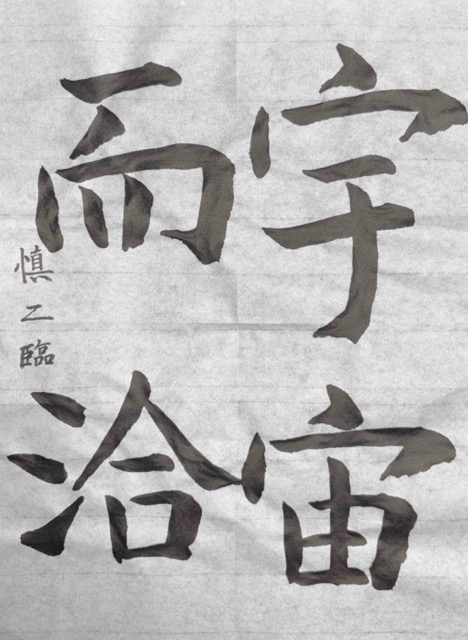 宇宙
而洽
慎二臨